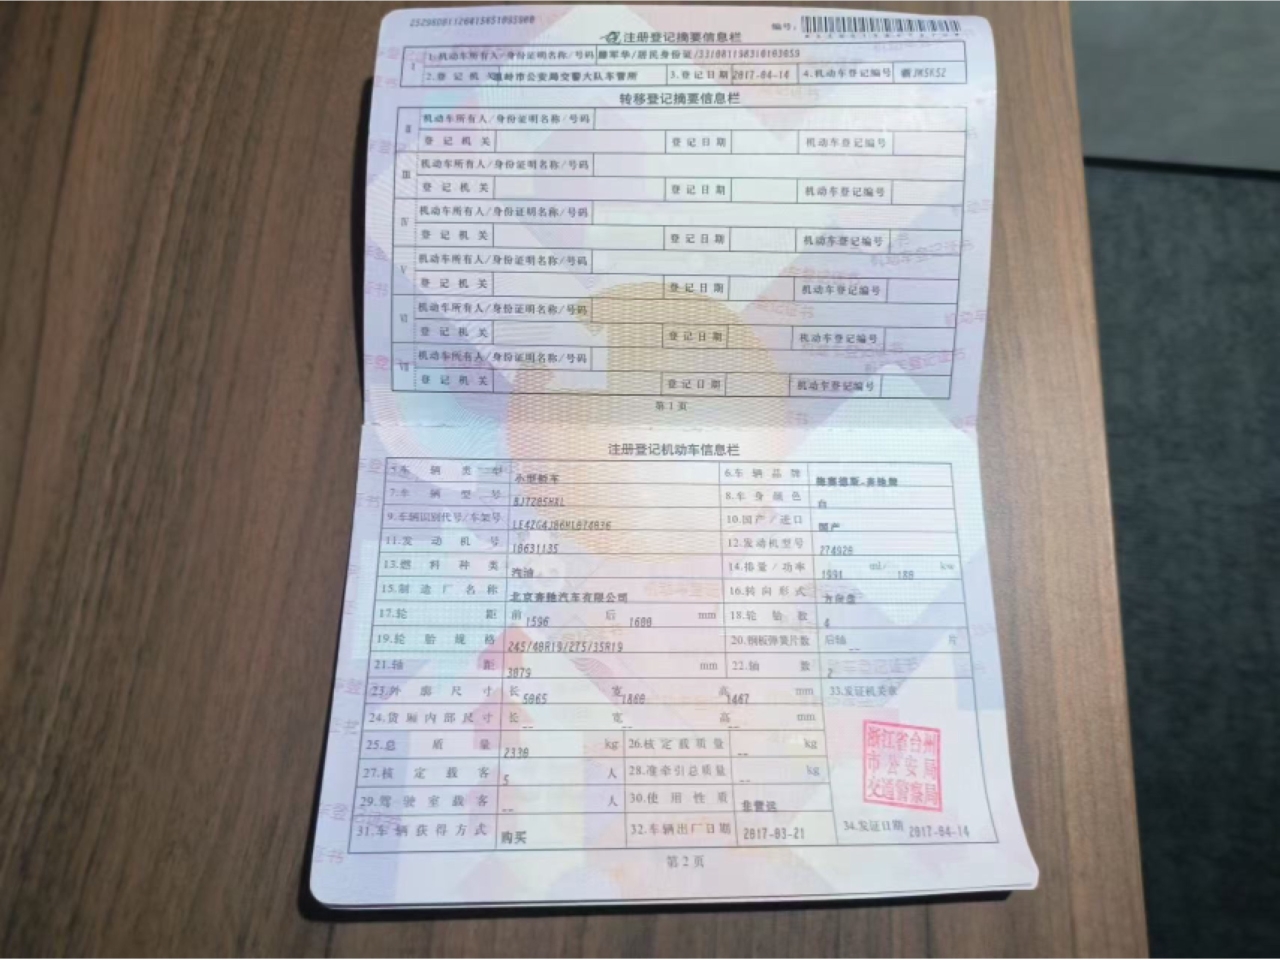 注册登记摘要信息栏
编号:
Ⅰ 1.机动车所有人/身份证明名称/号码 /居民身份证/
2.登记机关 温岭市公安局交警大队车管所 3.登记日期 2017-04-14 4.机动车登记编号 浙JK5K52
转移登记摘要信息栏
Ⅱ 机动车所有人/身份证明名称/号码
登记机关 登记日期 机动车登记编号
Ⅲ 机动车所有人/身份证明名称/号码
登记机关 登记日期 机动车登记编号
Ⅳ 机动车所有人/身份证明名称/号码
登记机关 登记日期 机动车登记编号
Ⅴ 机动车所有人/身份证明名称/号码
登记机关 登记日期 机动车登记编号
Ⅵ 机动车所有人/身份证明名称/号码
登记机关 登记日期 机动车登记编号
Ⅶ 机动车所有人/身份证明名称/号码
登记机关 登记日期 机动车登记编号
第1页
注册登记机动车信息栏
5.车辆类型 小型轿车 6.车辆品牌 梅赛德斯-奔驰牌
7.车辆型号 8.车身颜色 白
9.车辆识别代号/车架号 10.国产/进口 国产
11.发动机号 18631135 12.发动机型号 274920
13.燃料种类 汽油 14.排量/功率 1991 ml/ 180 kw
15.制造厂名称 北京奔驰汽车有限公司 16.转向形式 方向盘
17.轮距 前 1596 后 1600 mm 18.轮胎数 4
19.轮胎规格 245/40R19/275/35R19 20.钢板弹簧片数 后轴 -- 片
21.轴距 3079 mm 22.轴数 2
23.外廓尺寸 长 5065 宽 1860 高 1467 mm 33.发证机关章
24.货厢内部尺寸 长 -- 宽 -- 高 -- mm
25.总质量 2330 kg 26.核定载质量 -- kg
27.核定载客 5 人 28.准牵引总质量 -- kg
浙江省台州
市公安局
交通警察局
29.驾驶室载客 -- 人 30.使用性质 非营运
31.车辆获得方式 购买 32.车辆出厂日期 2017-03-21 34.发证日期 2017-04-14
第2页